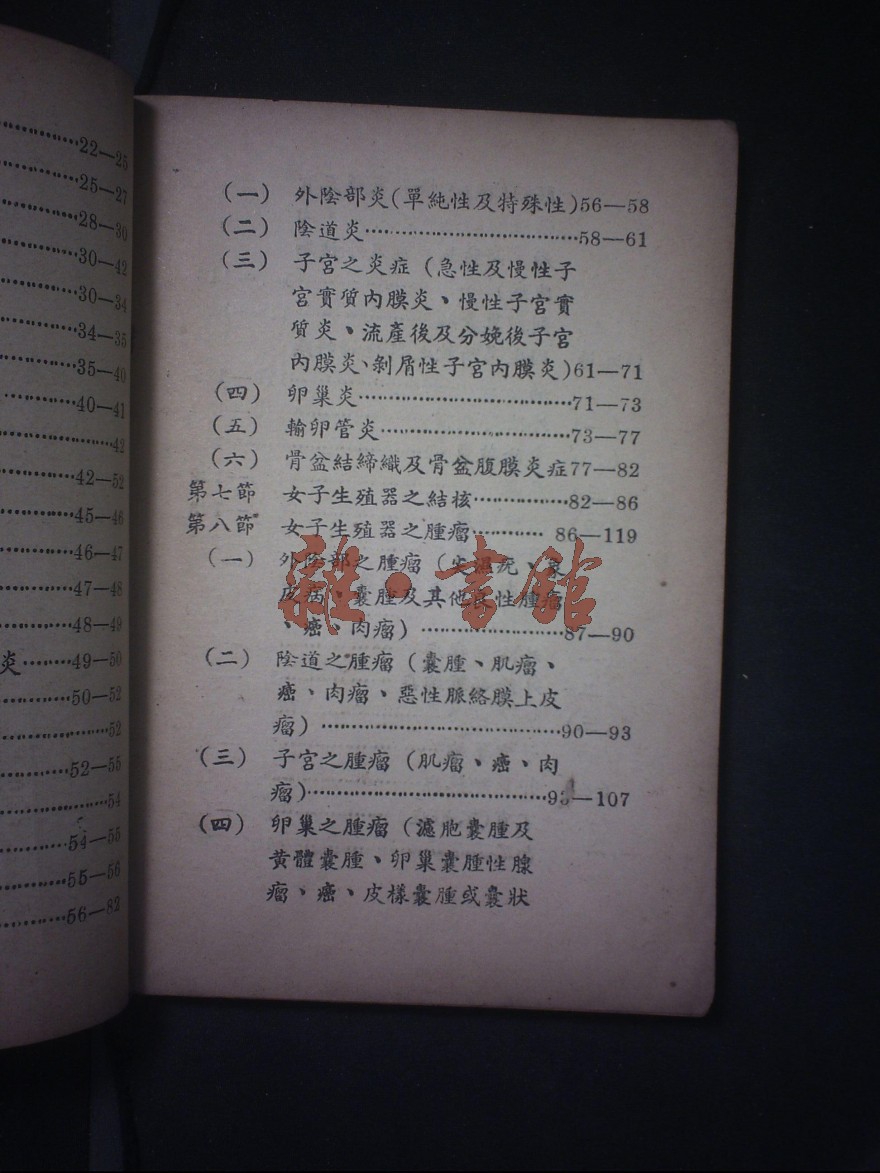 22—25
25—27
28—30
30—42
30—34
34—35
35—40
40—41
42
42—52
45—46
46—47
47—48
48—49
炎⋯⋯49—50
50—52
52
52—55
54
54—55
55—56
56—82
(一) 外陰部炎(單純性及特殊性)56—58
(二) 陰道炎⋯⋯58—61
(三) 子宮之炎症 (急性及慢性子
宮實質內膜炎、慢性子宮實
質炎、流產後及分娩後子宮
內膜炎、剝屑性子宮內膜炎)61—71
(四) 卵巢炎⋯⋯71—73
(五) 輸卵管炎⋯⋯73—77
(六) 骨盆結締織及骨盆腹膜炎症77—82
第七節 女子生殖器之結核⋯⋯82—86
第八節 女子生殖器之腫瘤⋯⋯86—119
(一) 外陰部之腫瘤 (尖濕疣、象
皮病、囊腫及其他良性腫瘤
、癌、肉瘤) ⋯⋯87—90
(二) 陰道之腫瘤 (囊腫、肌瘤、
癌、肉瘤、惡性脈絡膜上皮
瘤) ⋯⋯90—93
(三) 子宮之腫瘤 (肌瘤、癌、肉
瘤)⋯⋯93—107
(四) 卵巢之腫瘤 (濾胞囊腫及
黃體囊腫、卵巢囊腫性腺
瘤、癌、皮樣囊腫或囊狀
雜·書館